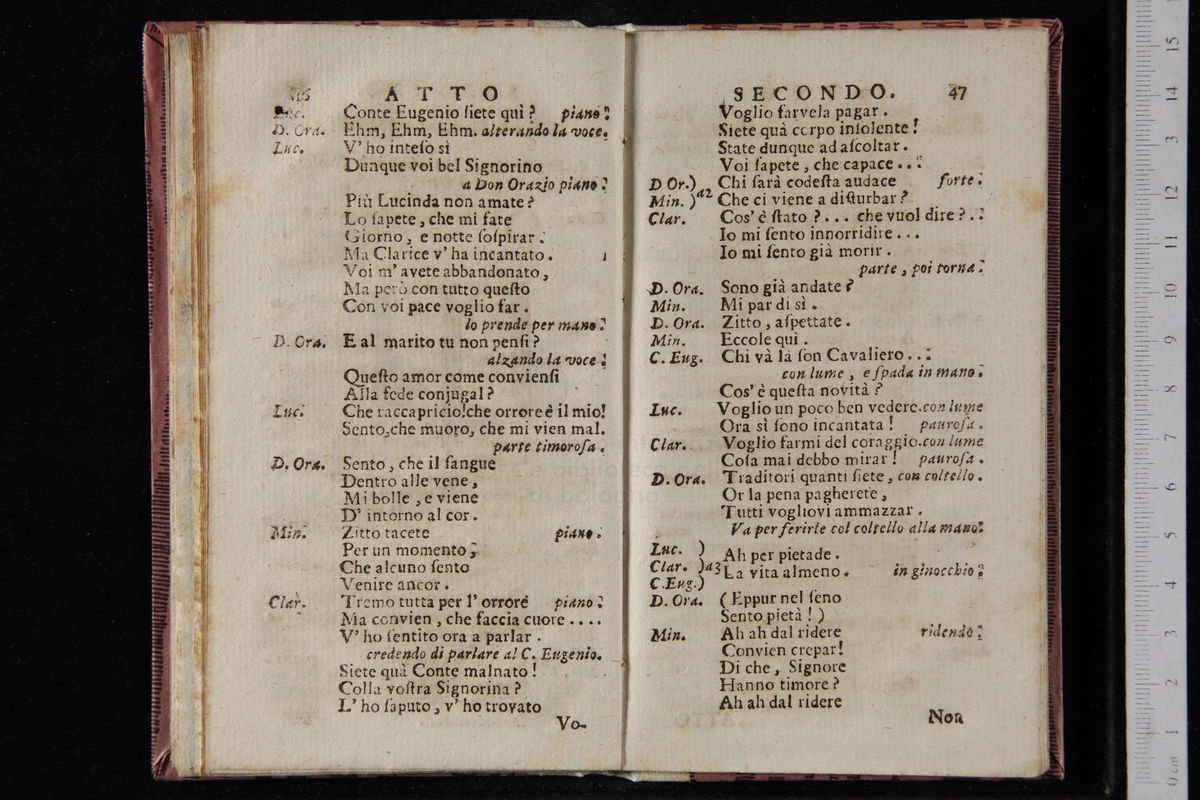 46 ATTO
Luc. Conte Eugenio ſiete quì? piano.
D. Ora. Ehm, Ehm, Ehm. alterando la voce.
Luc. V' ho inteſo sì
Dunque voi bel Signorino
a Don Orazio piano.
Più Lucinda non amate?
Lo ſapete, che mi fate
Giorno, e notte ſoſpirar.
Ma Clarice v' ha incantato.
Voi m' avete abbandonato,
Ma però con tutto queſto
Con voi pace voglio far.
lo prende per mano.
D. Ora. E al marito tu non penſi?
alzando la voce.
Queſto amor come convienſi
Alla fede conjugal?
Luc. Che raccapricio!che orrore è il mio!
Sento,che muoro, che mi vien mal.
parte timoroſa.
D. Ora. Sento, che il ſangue
Dentro alle vene,
Mi bolle, e viene
D' intorno al cor.
Min. Zitto tacete piano.
Per un momento;
Che alcuno ſento
Venire ancor.
Clar. Tremo tutta per l' orrore piano.
Ma convien, che faccia cuore....
V' ho ſentito ora a parlar.
credendo di parlare al C. Eugenio.
Siete quà Conte malnato!
Colla voſtra Signorina?
L' ho ſaputo, v' ho trovato
Vo-
SECONDO. 47
Voglio farvela pagar.
Siete quà corpo inſolente!
State dunque ad aſcoltar.
Voi ſapete, che capace...
D Or.) Chi ſarà codeſta audace forte.
Min. )a2 Che ci viene a diſturbar?
Clar. Cos' è ſtato?... che vuol dire?..
Io mi ſento innorridire...
Io mi ſento già morir.
parte, poi torna.
D. Ora. Sono già andate?
Min. Mi par di sì.
D. Ora. Zitto, aſpettate.
Min. Eccole quì.
C. Eug. Chi và là ſon Cavaliero...
con lume, e ſpada in mano.
Cos' è queſta novità?
Luc. Voglio un poco ben vedere.con lume
Ora sì ſono incantata! pauroſa.
Clar. Voglio farmi del coraggio.con lume
Coſa mai debbo mirar! pauroſa.
D. Ora. Traditori quanti ſiete, con coltello.
Or la pena pagherete,
Tutti vogliovi ammazzar.
Va per ferirle col coltello alla mano.
Luc. ) Ah per pietade.
Clar. )a3 La vita almeno. in ginocchio.
C.Eug.)
D. Ora. (Eppur nel ſeno
Sento pietà!)
Min. Ah ah dal ridere ridendo.
Convien crepar!
Di che, Signore
Hanno timore?
Ah ah dal ridere
Non
0 cm 1 2 3 4 5 6 7 8 9 10 11 12 13 14 15